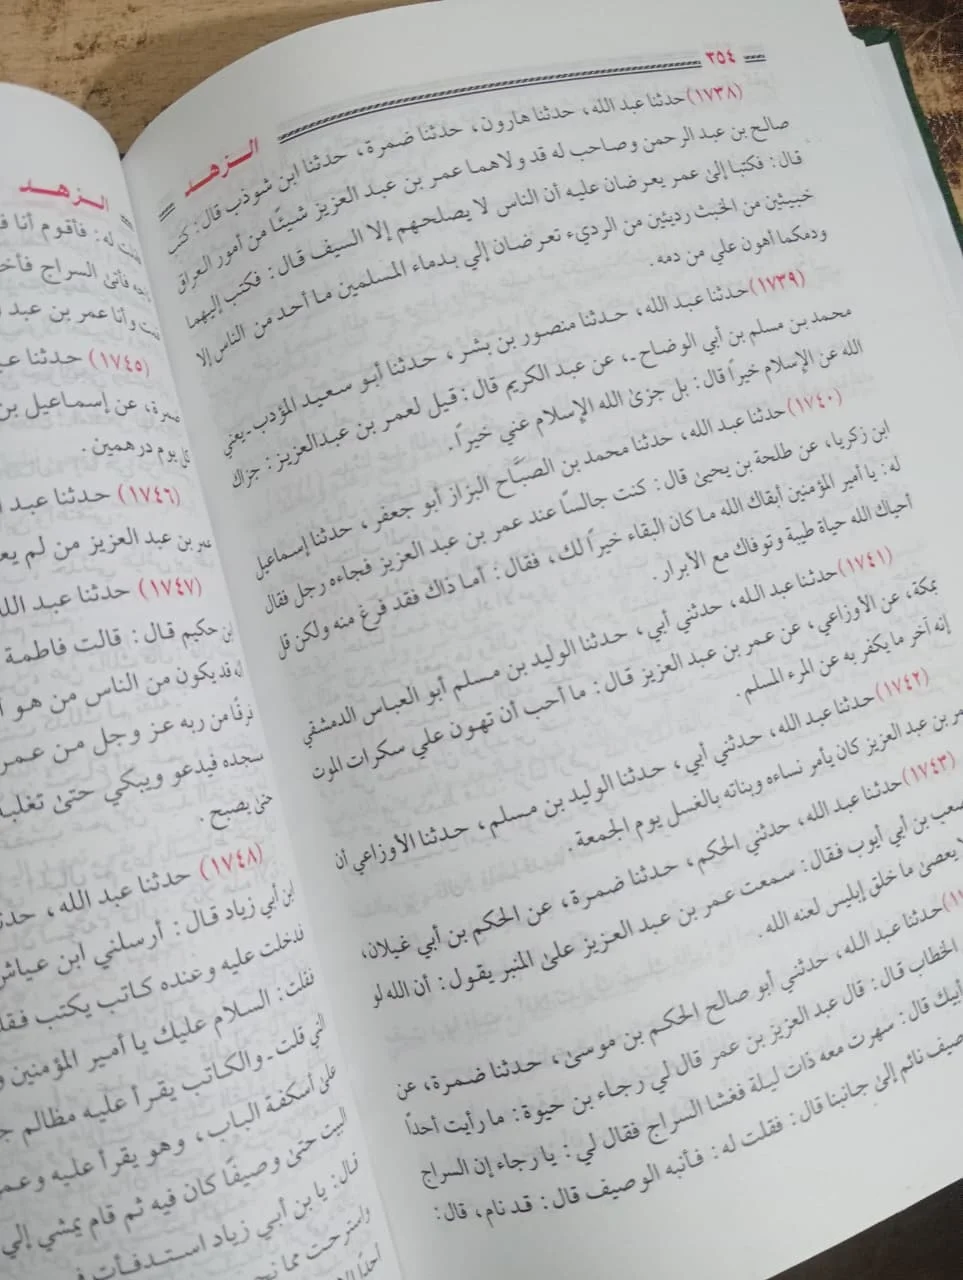 ٣٥٤
الـزهـد
(١٧٣٨) حدثنا عبد الله، حدثنا هارون، حدثنا ضمرة، حدثنا ابن شوذب قال: كتب
صالح بن عبد الرحمن وصاحب له قد ولاهما عمر بن عبد العزيز شيئًا من أمور العراق
قال: فكتبا إلىٰ عمر يعرضان عليه أن الناس لا يصلحهم إلا السيف قال: فكتب إليهما
خبيثين من الخبث رديئين من الرديء تعرضان إلي بدماء المسلمين ما أحد من الناس إلا
ودمكما أهون علي من دمه.
(١٧٣٩) حدثنا عبد الله، حدثنا منصور بن بشر، حدثنا أبو سعيد المؤدب ـ يعني
محمد بن مسلم بن أبي الوضاح ـ، عن عبد الكريم قال: قيل لعمر بن عبدالعزيز: جزاك
الله عن الإسلام خيراً قال: بل جزىٰ الله الإسلام عني خيراً.
(١٧٤٠) حدثنا عبد الله، حدثنا محمد بن الصبَّاح البزاز أبو جعفر، حدثنا إسماعيل
ابن زكريا، عن طلحة بن يحيىٰ قال: كنت جالسًا عند عمر بن عبد العزيز فجاءه رجل فقال
له: يا أمير المؤمنين أبقاك الله ما كان البقاء خيراً لك، فقال: أما ذاك فقد فرغ منه ولكن قل
أحياك الله حياة طيبة وتوفاك مع الأبرار.
(١٧٤١) حدثنا عبد الله، حدثني أبي، حدثنا الوليد بن مسلم أبو العباس الدمشقي
بمكة، عن الأوزاعي، عن عمر بن عبد العزيز قال: ما أحب أن تهون علي سكرات الموت
إنه آخر ما يكفر به عن المرء المسلم.
(١٧٤٢) حدثنا عبد الله، حدثني أبي، حدثنا الوليد بن مسلم، حدثنا الأوزاعي أن
بن عبد العزيز كان يأمر نساءه وبناته بالغسل يوم الجمعة.
(١٧٤٣) حدثنا عبد الله، حدثني الحكم، حدثنا ضمرة، عن الحكم بن أبي غيلان،
بن أبي أيوب فقال: سمعت عمر بن عبد العزيز علىٰ المنبر يقول: أن الله لو
يعصىٰ ما خلق إبليس لعنه الله.
حدثنا عبد الله، حدثني أبو صالح الحكم بن موسىٰ، حدثنا ضمرة، عن
الخطاب قال: قال عبد العزيز بن عمر قال لي رجاء بن حيوة: ما رأيت أحداً
أبيك قال: سهرت معه ذات ليلة فغشا السراج فقال لي: يا رجاء إن السراج
نائم إلىٰ جانبنا قال: فقلت له: فأنبه الوصيف قال: قد نام، قال:
الـزهـد
له: فأقوم أنا
فأتىٰ السراج
وأنا عمر بن عبد
(١٧٤٥) حدثنا
ضمرة، عن إسماعيل بن
كل يوم درهمين.
(١٧٤٦) حدثنا عبد
عمر بن عبد العزيز من لم
(١٧٤٧) حدثنا عبد الله
بن حكيم قال: قالت فاطمة
قد يكون من الناس من هو
فرقًا من ربه عز وجل من عمر
سجده فيدعو ويبكي حتىٰ
حتىٰ يصبح.
(١٧٤٨) حدثنا عبد الله،
ابن أبي زياد قال: أرسلني ابن
فدخلت عليه وعنده كاتب يكتب
فقلت: السلام عليك يا أمير المؤمنين
التي قلت ـ والكاتب يقرأ عليه مظالم
علىٰ أسكفة الباب، وهو يقرأ عليه
البيت حتىٰ وصيفًا كان فيه ثم قام يمشي إلي
قال: يا بن أبي زياد استدفأت
واسترحت مما